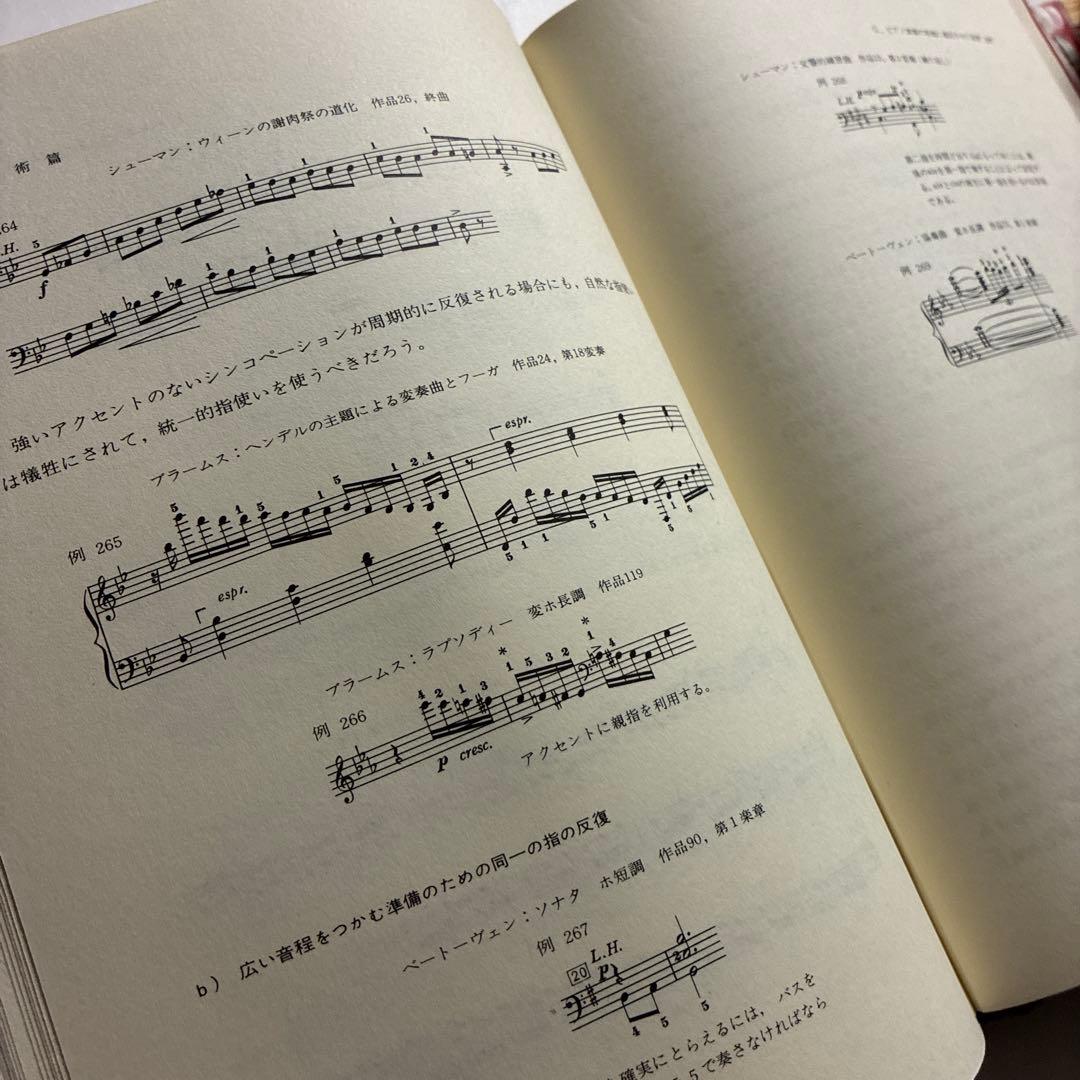 術 篇
シューマン：ウィーンの謝肉祭の道化　作品26，終曲
264
L.H.
5 1 1 1 1
f
1 1 1
強いアクセントのないシンコペーションが周期的に反復される場合にも，自然な
は犠牲にされて，統一的指使いを使うべきだろう。
ブラームス：ヘンデルの主題による変奏曲とフーガ　作品24，第18変奏
例 265
5 1 5 1 5 1 2 4
espr.
espr.
5 1 1 5 1 5 5 1
ブラームス：ラプソディー　変ホ長調　作品119
例 266
* *
4 2 1 3 1 5 3 2 1 4
p cresc.
アクセントに親指を利用する。
b） 広い音程をつかむ準備のための同一の指の反復
ベートーヴェン：ソナタ　ホ短調　作品90，第1楽章
例 267
20 L.H.
p
4 5 5
確実にとらえるには，バスを
5で奏さなければなら
例 268
L.H.
である。
例 269